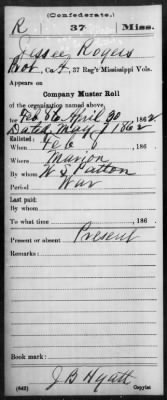 (Confederate.)
R 37 Miss.
Jessee Rogers
Pvt, Co. A, 37 Reg't Mississippi Vols.
Appears on
Company Muster Roll
of the organization named above,
for Feb 6 to April 30, 1862.
Dated May 1 1862
Enlisted:
When Feb 6, 186
Where Marion
By whom W S Patton
Period War
Last paid:
By whom
To what time , 186
Present or absent Present
Remarks:
Book mark:
(642) J B Hyatt
Copyist